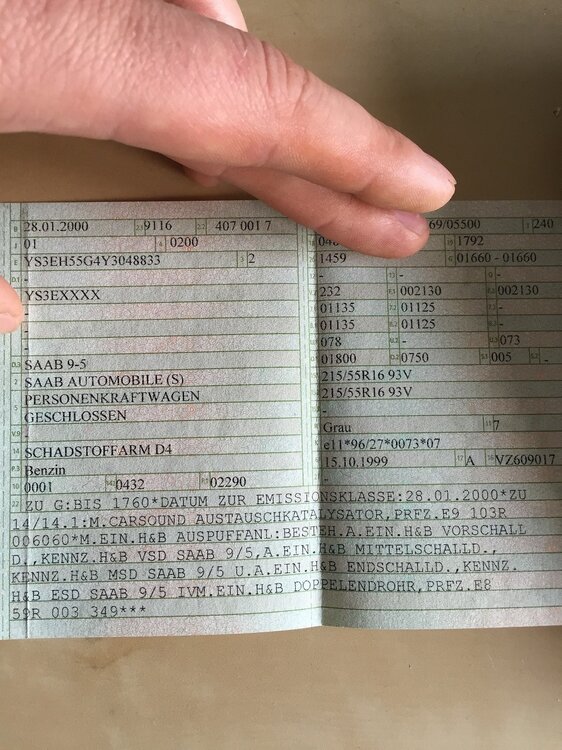 28.01.2000 9116 407 001 7
01 0200
YS3EH55G4Y3048833 2
-
YS3EXXXX
-
-
-
SAAB 9-5
SAAB AUTOMOBILE (S)
PERSONENKRAFTWAGEN
GESCHLOSSEN
-
SCHADSTOFFARM D4
Benzin
0001 0432 02290
69/05500 240
1792
1459 01660 - 01660
- - -
232 002130 002130
01135 01125 -
01135 01125 -
078 - 073
01800 0750 005 -
215/55R16 93V
215/55R16 93V
-
Grau 7
e11*96/27*0073*07
15.10.1999 A VZ609017
-
ZU G:BIS 1760*DATUM ZUR EMISSIONSKLASSE:28.01.2000*ZU
14/14.1:M.CARSOUND AUSTAUSCHKATALYSATOR,PRFZ.E9 103R
006060*M.EIN.H&B AUSPUFFANL:BESTEH.A.EIN.H&B VORSCHALL
D.,KENNZ.H&B VSD SAAB 9/5,A.EIN.H&B MITTELSCHALLD.,
KENNZ.H&B MSD SAAB 9/5 U.A.EIN.H&B ENDSCHALLD.,KENNZ.
H&B ESD SAAB 9/5 IVM.EIN.H&B DOPPELENDROHR,PRFZ.E8
59R 003 349***